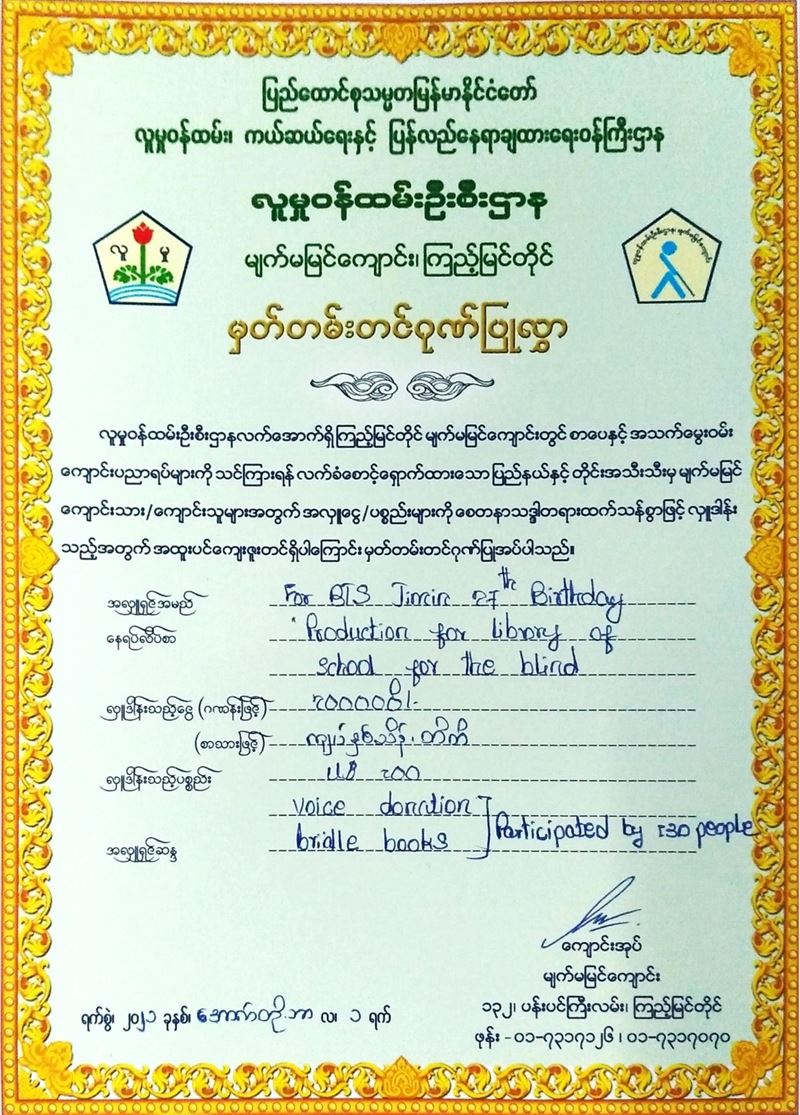 ပြည်ထောင်စုသမ္မတမြန်မာနိုင်ငံတော်
လူမှုဝန်ထမ်း၊ ကယ်ဆယ်ရေးနှင့် ပြန်လည်နေရာချထားရေးဝန်ကြီးဌာန
လူမှုဝန်ထမ်းဦးစီးဌာန
လူ မှု
မျက်မမြင်ကျောင်း၊ ကြည့်မြင်တိုင်
မှတ်တမ်းတင်ဂုဏ်ပြုလွှာ
လူမှုဝန်ထမ်းဦးစီးဌာနလက်အောက်ရှိ ကြည့်မြင်တိုင် မျက်မမြင်ကျောင်းတွင် စာပေနှင့် အသက်မွေးဝမ်း
ကျောင်းပညာရပ်များကို သင်ကြားရန် လက်ခံစောင့်ရှောက်ထားသော ပြည်နယ်နှင့် တိုင်းအသီးသီးမှ မျက်မမြင်
ကျောင်းသား/ကျောင်းသူများအတွက် အလှူငွေ/ပစ္စည်းများကို စေတနာသဒ္ဓါတရားထက်သန်စွာဖြင့် လှူဒါန်း
သည့်အတွက် အထူးပင်ကျေးဇူးတင်ရှိပါကြောင်း မှတ်တမ်းတင်ဂုဏ်ပြုအပ်ပါသည်။
အလှူရှင်အမည် For BTS Jimin 27th Birthday
နေရပ်လိပ်စာ Production for library of
school for the blind
လှူဒါန်းသည့်ငွေ (ဂဏန်းဖြင့်) ၂၀၀၀၀၀ိ/-
(စာသားဖြင့်) ကျပ်နှစ်သိန်းတိတိ
လှူဒါန်းသည့်ပစ္စည်း ၂၀၀
voice donation
အလှူရှင်ဆန္ဒ brialle books Participated by 130 people
ကျောင်းအုပ်
မျက်မမြင်ကျောင်း
ရက်စွဲ၊ ၂၀၂၁ ခုနှစ်၊ အောက်တိုဘာ လ၊ ၁ ရက်
၁၃၂၊ ပန်းပင်ကြီးလမ်း၊ ကြည့်မြင်တိုင်
ဖုန်း - ၀၁-၇၃၁၇၁၂၆ ၊ ၀၁-၇၃၁၇၀၇၀